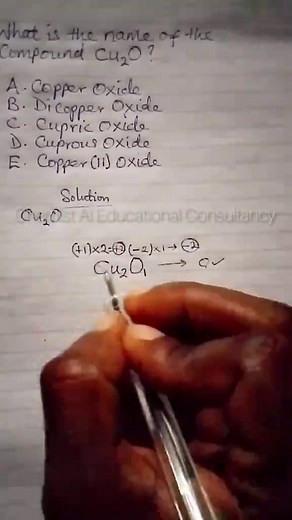 What is the name of the
Compound Cu₂O?
A. Copper Oxide
B. Dicopper Oxide
C. Cupric Oxide
D. Cuprous Oxide
E. Copper (II) Oxide
Solution
Cu₂O
AI Educational Consultancy
(+1)×2=+2 (-2)×1→-2
Cu₂O₁ →